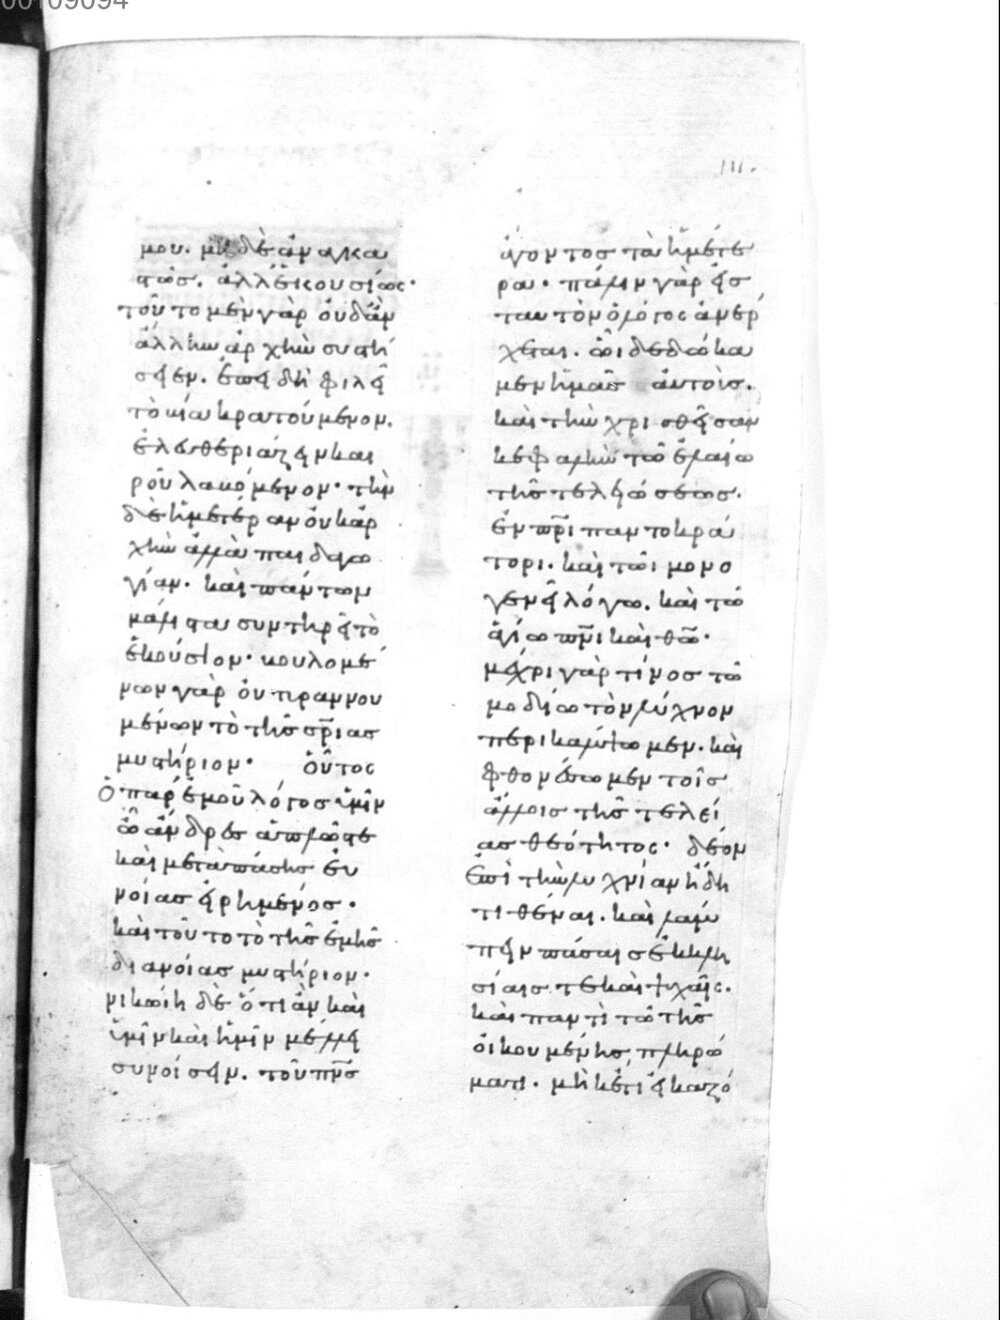 00109094
111.
μου. μὴ δὲ ἀναγκα
στῶσ. ἀλλ' ἑκουσίως·
τοῦτο μὲν γὰρ οὐδ' ἂν
ἄλλην ἀρχὴν συστή
σειεν. ἐπειδὴ φιλεῖ
τὸ βία κρατούμενον.
ἐλευθεριάζειν καιροῦ λαβόμενον· τὴν
δὲ ἡμετέραν οὐκ ἀρ
χὴν ἀλλὰ παιδαγω
γίαν. καὶ πάντων
μάλιστα συντηρεῖ τὸ
ἑκούσιον· βουλομέ
νων γὰρ οὐ τυραννου
μένων τὸ τῆς σρίας
μυστήριον· οὗτος
ὁ παρ' ἐμοῦ λόγος ὑμῖν
ὦ ἄνδρες ἁπλῶς τε
καὶ μετὰ πάσης εὐ
νοίας εἰρημένος·
καὶ τοῦτο τὸ τῆς ἐμῆς
διανοίας μυστήριον·
νικώη δὲ ὅ τι ἂν καὶ
ὑμῖν καὶ ἡμῖν μέλλῃ
συνοίσειν. τοῦ πνς
ἄγοντος τὰ ἡμέτε
ρα· πάλιν γὰρ εἰς
ταυτὸν ὁ λόγος ἀνέρ
χεται. ὧι δεδώκα
μεν ἡμᾶς αὐτοὺσ.
καὶ τὴν χρισθεῖσαν
κεφαλὴν τῶ ἐλαίω
τῆς τελειώσεως.
ἐν πρι παντοκρά
τορι. καὶ τῶι μονο
γενεῖ λόγω. καὶ τῶ
ἁγίω πνι καὶ θω·
μέχρι γὰρ τίνος τῶ
μοδίω τὸν λύχνον
περικαλύπτωμεν. καὶ
φθονέσωμεν τοῖς
ἄλλοις τῆς τελεί
ας θεότητος· δέον
ἐπὶ τὴν λυχνίαν ἤδη
τιθέναι. καὶ λάμ
πειν πάσαις ἐκκλη
σίαις τε καὶ ψυχαῖς.
καὶ παντὶ τῶ τῆς
οἰκουμένης πληρώ
ματι· μηκέτι εἰκαζό